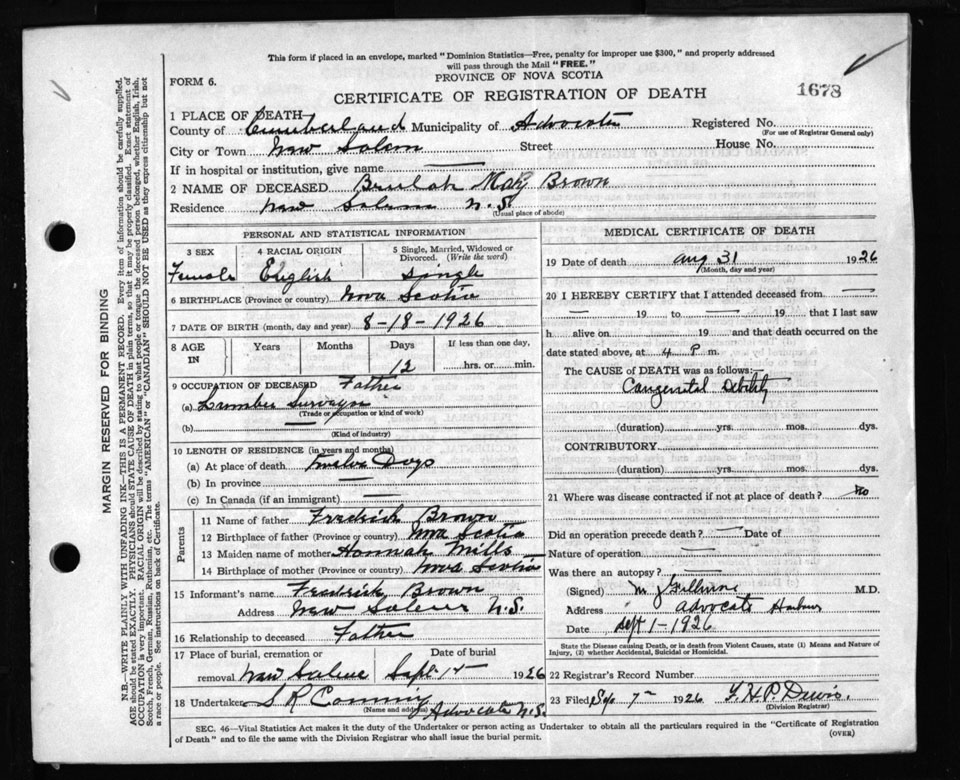 This form if placed in an envelope, marked "Dominion Statistics—Free, penalty for improper use $300," and properly addressed
will pass through the Mail "FREE."
PROVINCE OF NOVA SCOTIA
FORM 6.
CERTIFICATE OF REGISTRATION OF DEATH
1678
1 PLACE OF DEATH
County of Cumberland Municipality of Advocate Registered No.
(For use of Registrar General only)
City or Town New Salem Street House No.
If in hospital or institution, give name —
2 NAME OF DECEASED Beulah May Brown
Residence New Salem N.S.
(Usual place of abode)
PERSONAL AND STATISTICAL INFORMATION
3 SEX 4 RACIAL ORIGIN 5 Single, Married, Widowed or Divorced. (Write the word)
Female English Single
6 BIRTHPLACE (Province or country) Nova Scotia
7 DATE OF BIRTH (month, day and year) 8-18-1926
8 AGE IN Years Months Days If less than one day,
12 hrs. or min.
9 OCCUPATION OF DECEASED Father
(a) Lumber Surveyor
(Trade or occupation or kind of work)
(b) —
(Kind of industry)
10 LENGTH OF RESIDENCE (in years and months)
(a) At place of death Twelve Days
(b) In province —
(c) In Canada (if an immigrant) —
Parents
11 Name of father Fredrick Brown
12 Birthplace of father (Province or country) Nova Scotia
13 Maiden name of mother Hannah Mills
14 Birthplace of mother (Province or country) Nova Scotia
15 Informant's name Fredrick Brown
Address New Salem N.S.
16 Relationship to deceased Father
17 Place of burial, cremation or removal Date of burial
New Salem Sept 1st 1926
18 Undertaker S R
(Name and address) Advocate N.S.
MEDICAL CERTIFICATE OF DEATH
19 Date of death Aug 31 1926
(Month, day and year)
20 I HEREBY CERTIFY that I attended deceased from —
— 19 to — 19 that I last saw
h alive on 19 and that death occurred on
date stated above, at 4 P m.
The CAUSE of DEATH was as follows:—
Congenital Debility
(duration) yrs. mos. dys.
CONTRIBUTORY
(duration) yrs. mos. dys.
21 Where was disease contracted if not at place of death? No
Did an operation precede death? — Date of
Nature of operation —
Was there an autopsy? —
(Signed) M.D.
Address Advocate Harbour
Date Sept 1-1926
State the Disease causing Death, or in death from Violent Causes, state (1) Means and Nature of
Injury, (2) whether Accidental, Suicidal or Homicidal.
22 Registrar's Record Number
23 Filed Sep 7 1926
(Division Registrar)
SEC. 46—Vital Statistics Act makes it the duty of the Undertaker or person acting as Undertaker to obtain all the particulars required in the "Certificate of Registration
of Death" and to file the same with the Division Registrar who shall issue the burial permit.
(OVER)
MARGIN RESERVED FOR BINDING
N.B.—WRITE PLAINLY WITH UNFADING INK—THIS IS A PERMANENT RECORD. Every item of information should be carefully supplied.
AGE should be stated EXACTLY. PHYSICIANS should STATE CAUSE OF DEATH in plain terms, so that it may be properly classified. Exact statement of
OCCUPATION is very important. RACIAL ORIGIN will be described by stating to what people or tongue the deceased person belonged, whether English, Irish,
Scotch, French, German, Russian, Ruthenian, etc. The terms "AMERICAN" or "CANADIAN" SHOULD NOT BE USED as they express citizenship but not
a race or people. See instructions on back of Certificate.